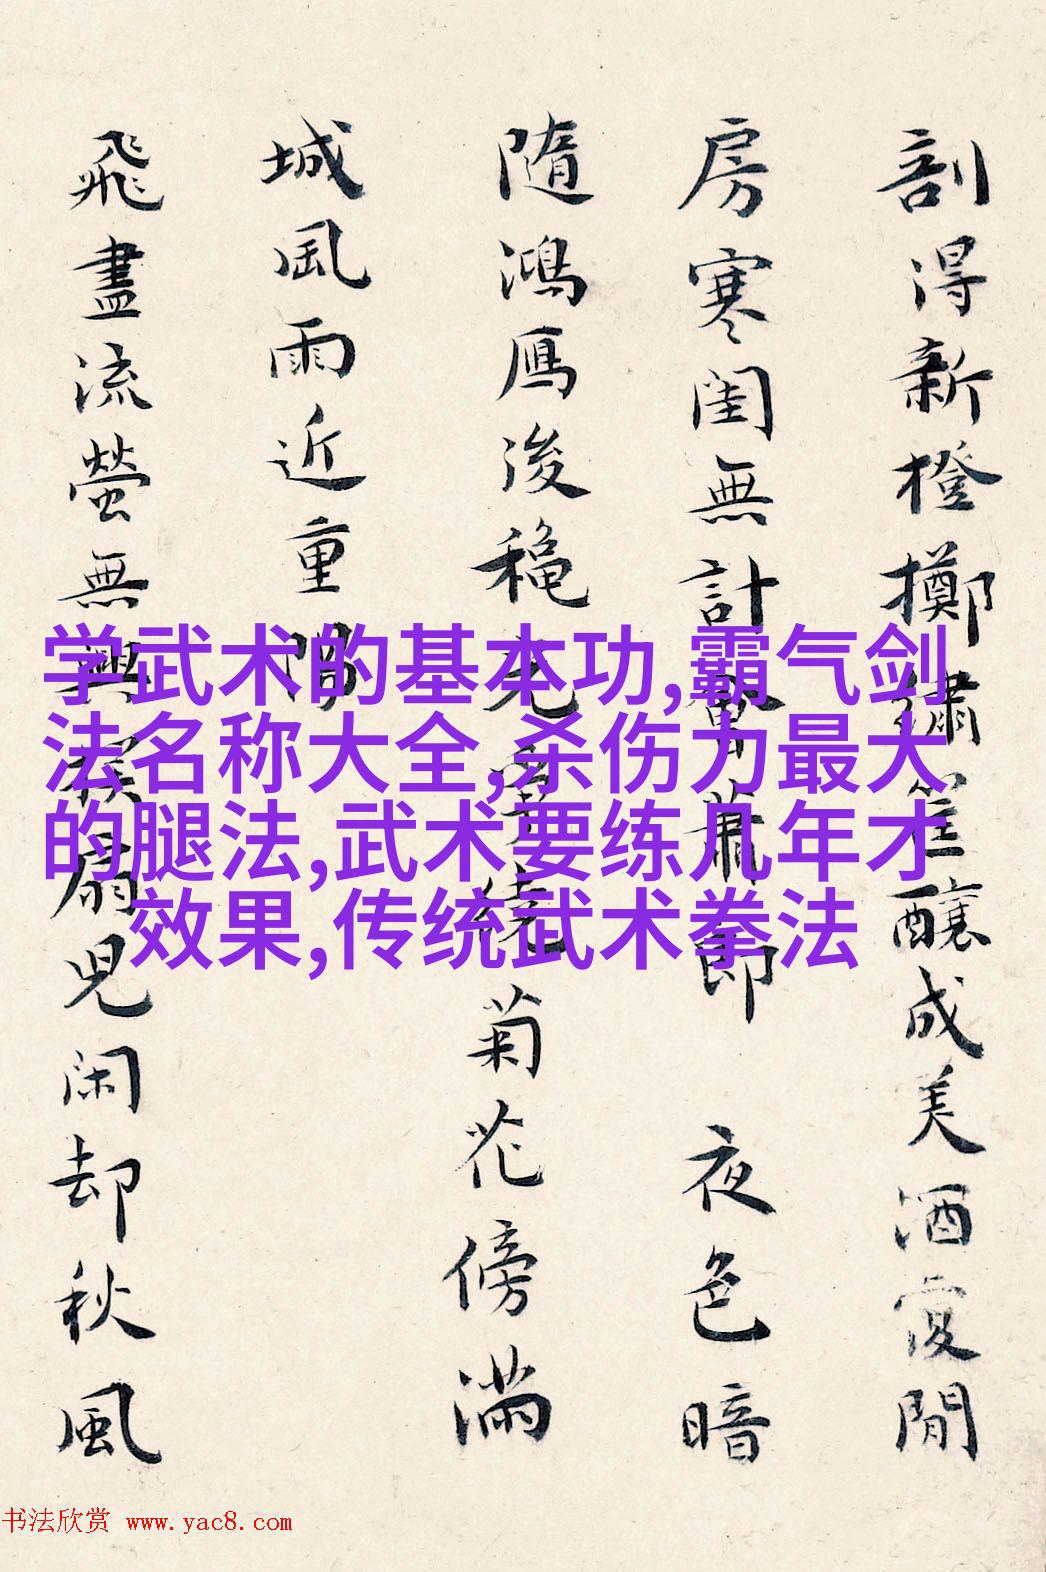 剖得新橙擲繡筐釀成美酒復閒
房寒閨無計奮蕭郎 夜色暗
隨鴻雁後穐光 菊花傍滿
城風雨近重陽
飛盡流螢無興撲扇兒闲却秋風
学武术的基本功,霸气剑
法名称大全,杀伤力最大
的腿法,武术要练几年才
效果,传统武术拳法
书法欣赏 www.yac8.com